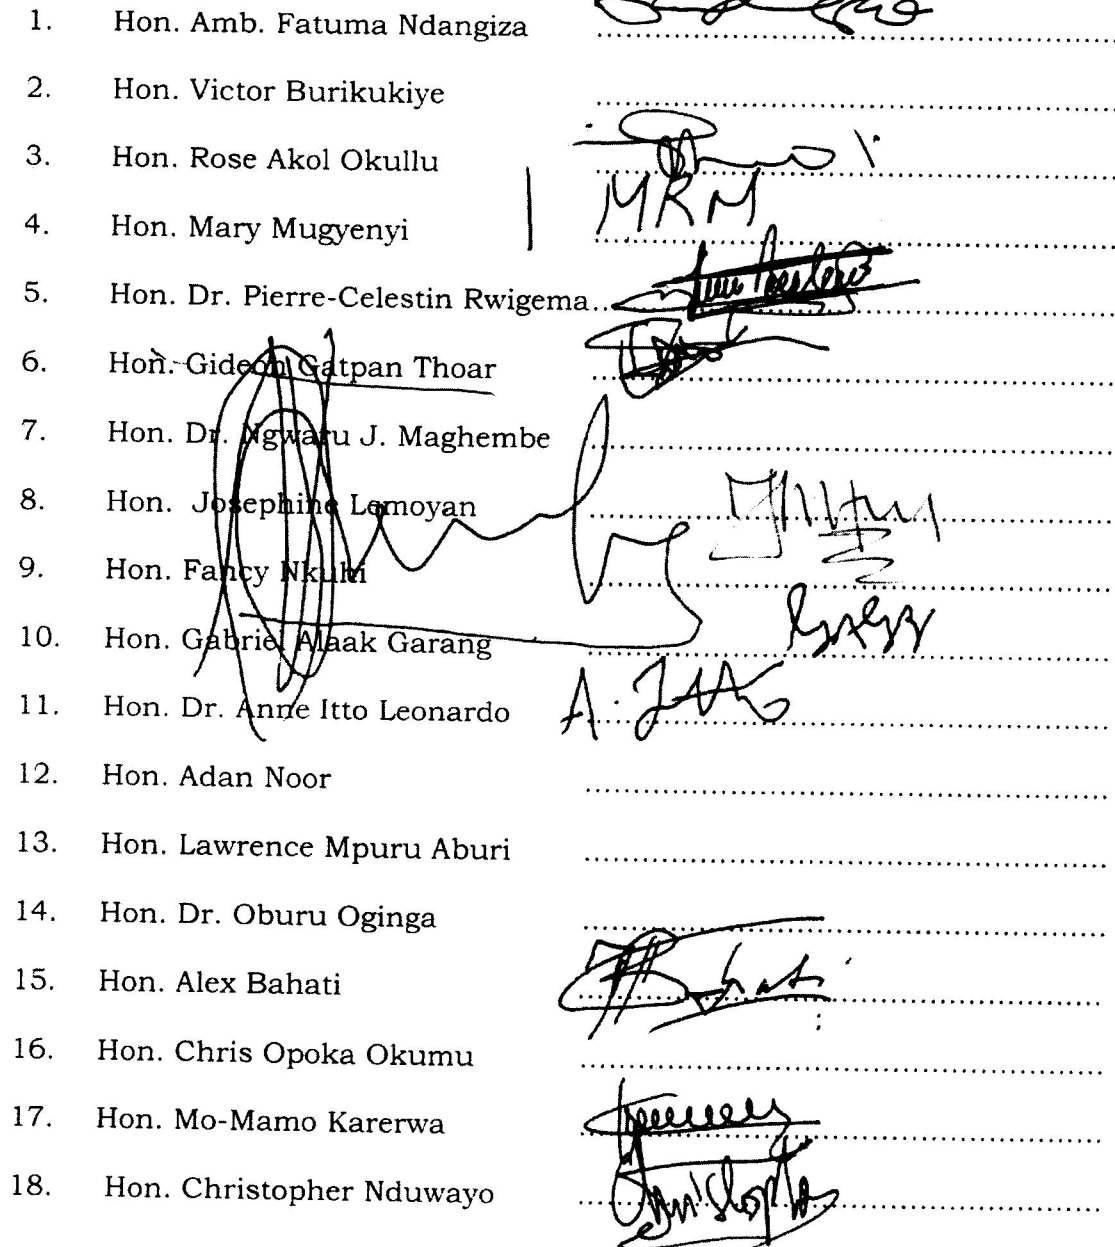 1. Hon. Amb. Fatuma Ndangiza ..........
2. Hon. Victor Burikukiye ..........
3. Hon. Rose Akol Okullu ..........
4. Hon. Mary Mugyenyi MRM ..........
5. Hon. Dr. Pierre-Celestin Rwigema ..........
6. Hon. Gideon Gatpan Thoar ..........
7. Hon. Dr. Ngwaru J. Maghembe ..........
8. Hon. Josephine Lemoyan ..........
9. Hon. Fancy Nkuhi ..........
10. Hon. Gabriel Alaak Garang ..........
11. Hon. Dr. Anne Itto Leonardo A. Itto ..........
12. Hon. Adan Noor ..........
13. Hon. Lawrence Mpuru Aburi ..........
14. Hon. Dr. Oburu Oginga ..........
15. Hon. Alex Bahati ..........
16. Hon. Chris Opoka Okumu ..........
17. Hon. Mo-Mamo Karerwa ..........
18. Hon. Christopher Nduwayo ..........